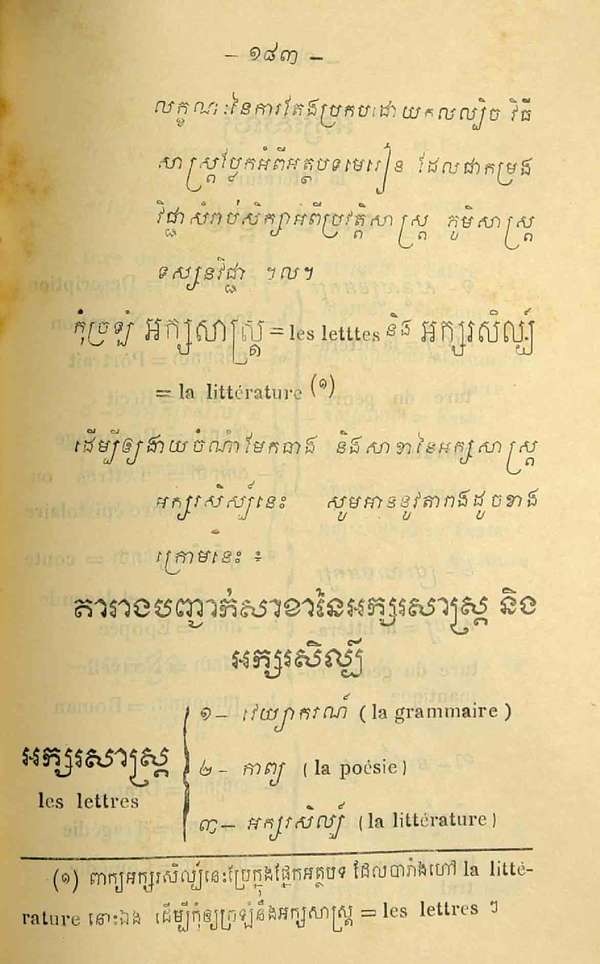 – ១៨៣ –
លក្ខណៈនៃការតែងប្រកបដោយកលល្បិច វិធី
សាស្ត្រប្លែកអំពីអត្ថបទមេរៀន ដែលជាកម្រង
វិជ្ជាសំរាប់សិក្សាអំពីប្រវត្តិសាស្ត្រ ភូមិសាស្ត្រ
ទស្សនវិជ្ជា ។ល។
កុំច្រឡំ អក្សសាស្ត្រ = les letttes និង អក្សរសិល្ប៍
= la littérature (១)
ដើម្បីឲ្យងាយចំណាំមែកធាង និងសាខានៃអក្សសាស្ត្រ
អក្សរសិស្ប៍នេះ សូមអាននូវតាពងដូចខាង
ក្រោមនេះ ៖
តារាងបញ្ជាក់សាខានៃអក្សរសាស្ត្រ និង
អក្សរសិល្ប៍
អក្សរសាស្ត្រ
les lettres
១– វេយ្យាករណ៍ ( la grammaire )
២ – កាព្យ ( la poésie )
៣ – អក្សរសិល្ប៍ ( la littérature )
(១) ពាក្យអក្សរសិល្ប៍នេះប្រែក្នុងផ្នែកអត្ថបទ ដែលបារាំងហៅ la litté-
rature នោះឯង ដើម្បីកុំឲ្យច្រឡំនឹងអក្សសាស្ត្រ = les lettres ៗ